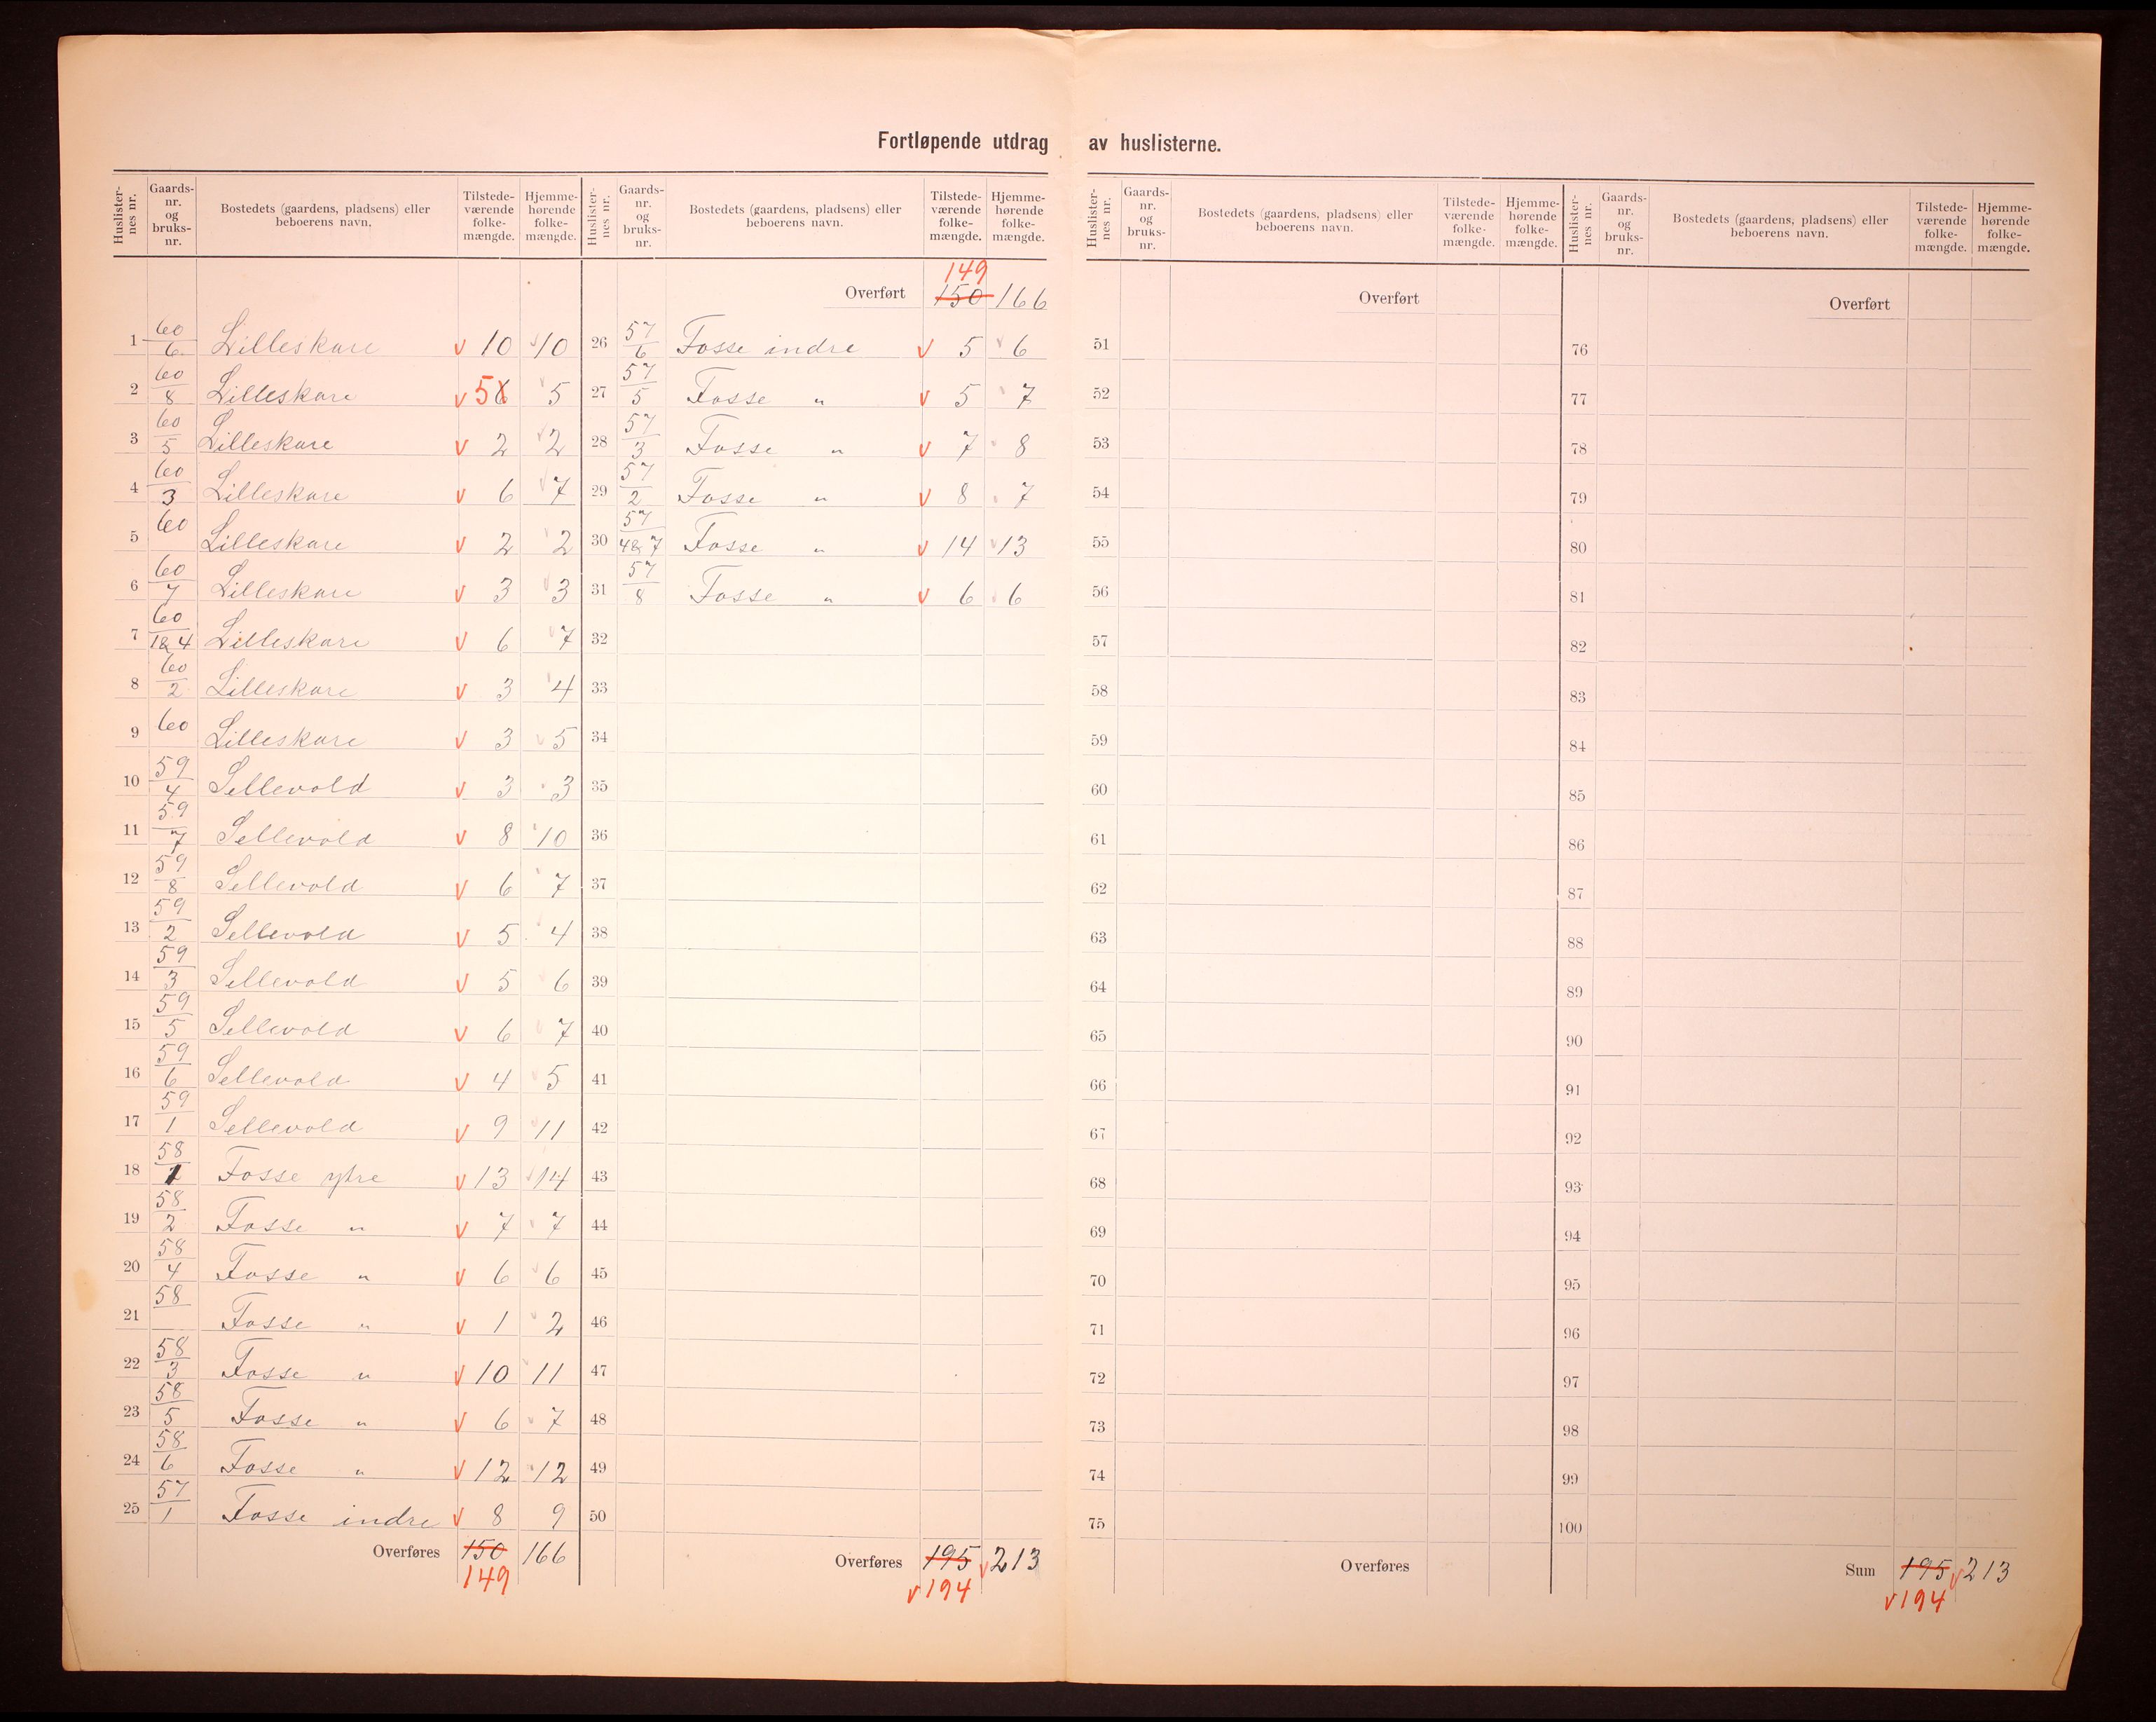 Fortløpende utdrag av huslisterne.
Huslisternes nr. | Gaards-nr. og bruks-nr. | Bostedets (gaardens, pladsens) eller beboerens navn. | Tilstede-værende folke-mængde. | Hjemme-hørende folke-mængde.
1 60/6 Lilleskare v 10 v 10
2 60/8 Lilleskare v 5 6 v 5
3 60/5 Lilleskare v 2 v 2
4 60/3 Lilleskare v 6 v 7
5 60 Lilleskare v 2 2
6 60/7 Lilleskare v 3 v 3
7 60/1&4 Lilleskare v 6 v 7
8 60/2 Lilleskare v 3 4
9 60 Lilleskare v 3 v 5
10 59/4 Sellevold v 3 3
11 59/7 Sellevold v 8 10
12 59/8 Sellevold v 6 7
13 59/2 Sellevold v 5 4
14 59/3 Sellevold v 5 6
15 59/5 Sellevold v 6 7
16 59/6 Sellevold v 4 5
17 59/1 Sellevold v 9 11
18 58/1 Fosse ytre v 13 14
19 58/2 Fosse " v 7 7
20 58/4 Fosse " v 6 6
21 58 Fosse " v 1 2
22 58/3 Fosse " v 10 11
23 58/5 Fosse " v 6 7
24 58/6 Fosse " v 12 12
25 57/1 Fosse indre v 8 9
Overføres 150 166
149
Huslisternes nr. | Gaards-nr. og bruks-nr. | Bostedets (gaardens, pladsens) eller beboerens navn. | Tilstede-værende folke-mængde. | Hjemme-hørende folke-mængde.
149
Overført 150 166
26 57/6 Fosse indre v 5 v 6
27 57/5 Fosse " v 5 7
28 57/3 Fosse " v 7 8
29 57/2 Fosse " v 8 7
30 57/4&7 Fosse " v 14 v 13
31 57/8 Fosse " v 6 6
32
33
34
35
36
37
38
39
40
41
42
43
44
45
46
47
48
49
50
Overføres 195 v 213
v 194
Huslisternes nr. | Gaards-nr. og bruks-nr. | Bostedets (gaardens, pladsens) eller beboerens navn. | Tilstede-værende folke-mængde. | Hjemme-hørende folke-mængde.
Overført
51
52
53
54
55
56
57
58
59
60
61
62
63
64
65
66
67
68
69
70
71
72
73
74
75
Overføres
Huslisternes nr. | Gaards-nr. og bruks-nr. | Bostedets (gaardens, pladsens) eller beboerens navn. | Tilstede-værende folke-mængde. | Hjemme-hørende folke-mængde.
Overført
76
77
78
79
80
81
82
83
84
85
86
87
88
89
90
91
92
93
94
95
96
97
98
99
100
Sum 195 v 213
v 194